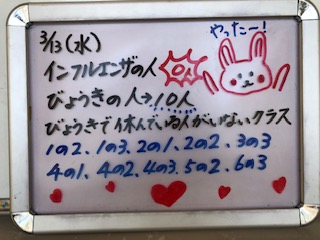 3/13(水)
やったー!
インフルエンザの人 0人
びょうきの人→10人
びょうきで休んでいる人がいないクラス
1の2、1の3、2の1、2の2、3の3
4の1、4の2、4の3、5の2、6の3